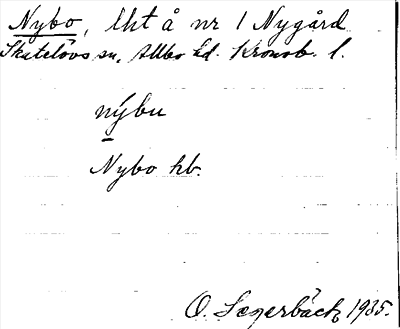 Nybo, lht å nr 1 Nygård
Skatelövs sn, Allbo hd. Kronob. l.
nýbu
Nybo hb.
O. Sagerbäck, 1935.